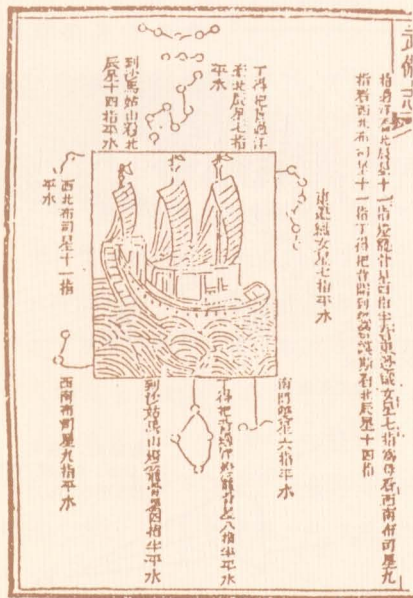 武備志
指過洋看北辰星十一指燈籠骨星四指半看東邊織女星七指爲母看西南布司星九
指看西北布司星十一指丁得把昔開到忽魯謨斯看北辰星十四指
丁得把昔過洋
看北辰星七指
平水
到沙馬姑山看北
辰星十四指平水
東邊織女星七指平水
西北布司星十一指
平水
南門雙星六指平水
丁得把昔過洋看燈籠骨星八指半平水
到沙姑馬山燈籠骨星四指半平水
西南布司星九指平水